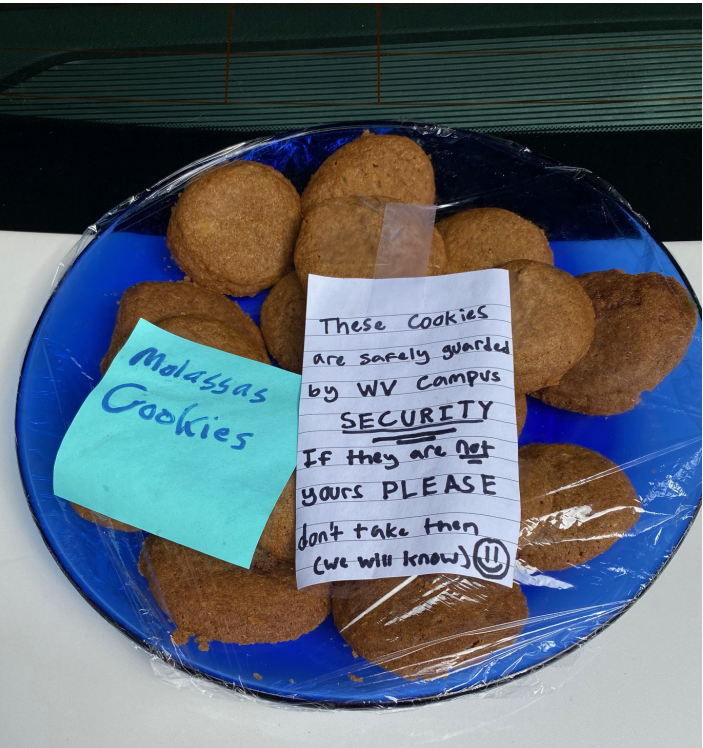 Molassas
Cookies
These Cookies
are safely guarded
by WV Campus
SECURITY
If they are not
yours PLEASE
don't take then
(we will know)